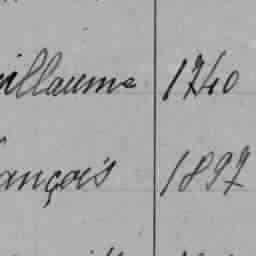 uillaume 1740
ançois 1897